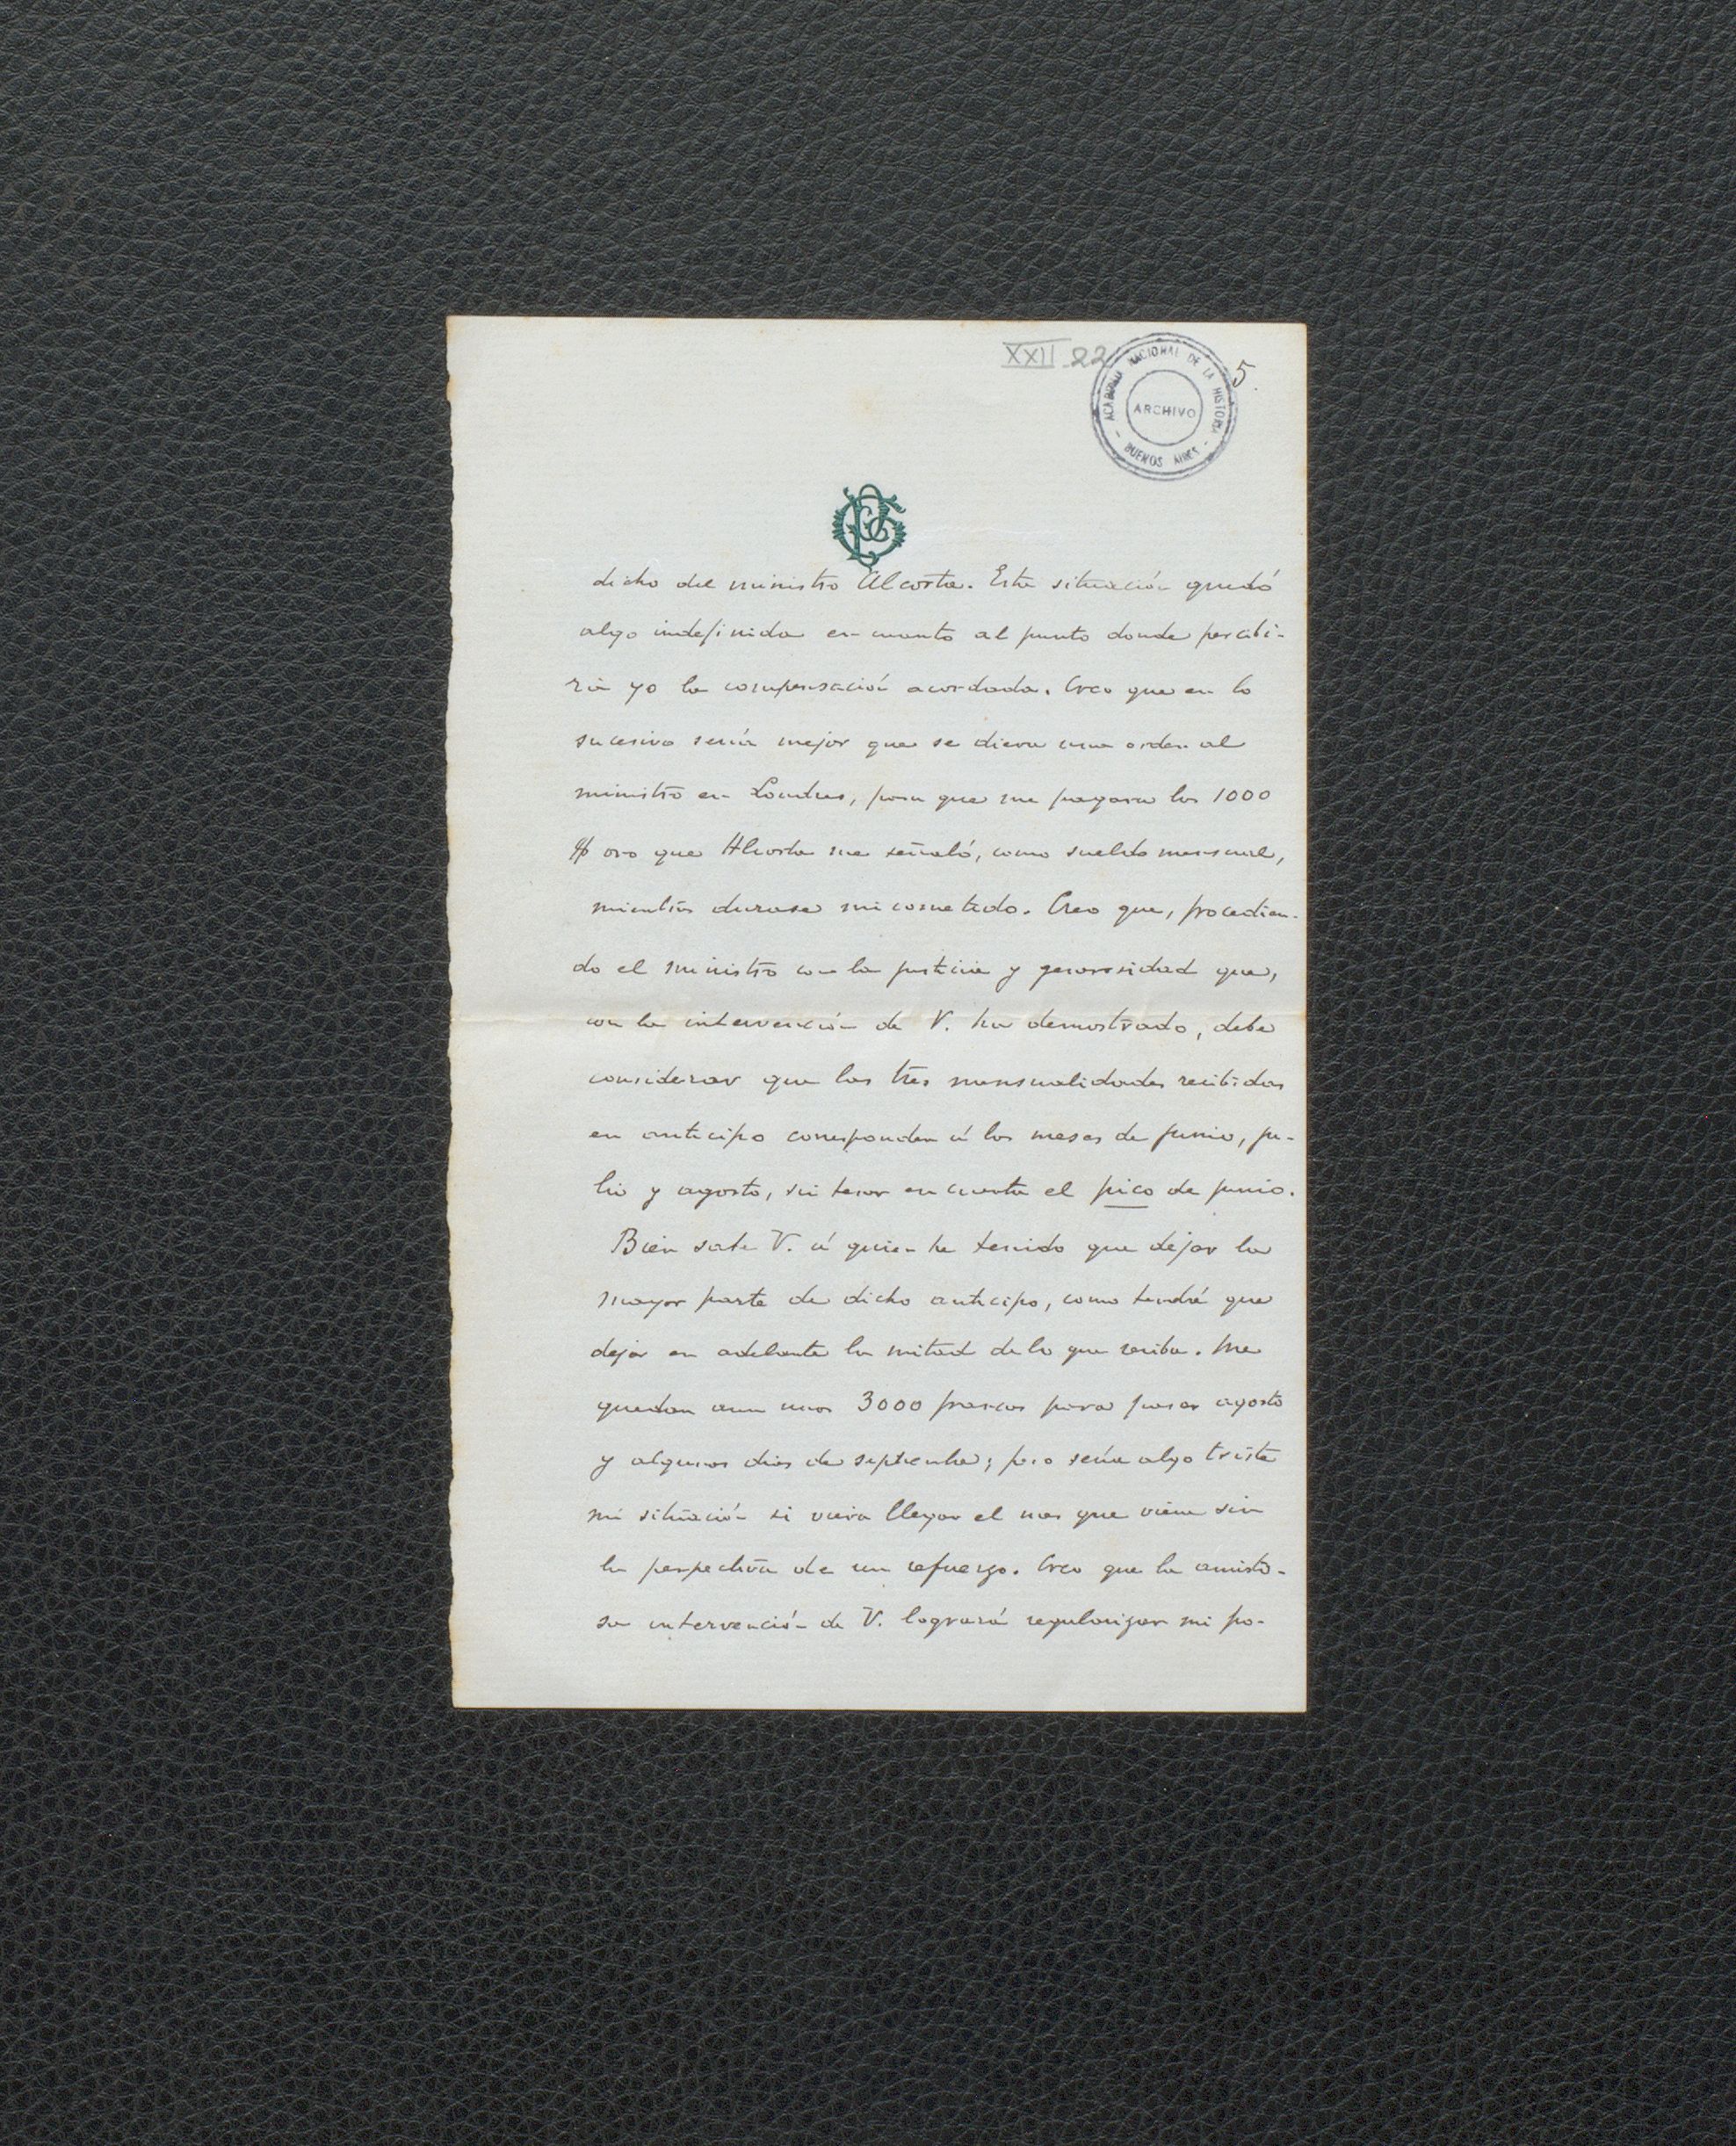 XXII 22
5.
ACADEMIA NACIONAL DE LA HISTORIA - BUENOS AIRES -
ARCHIVO
dicho del ministro Alcorta. Esta situación quedó
algo indefinida en cuanto al punto donde percibi-
ría yo la compensación acordada. Creo que en lo
sucesivo sería mejor que se diera una orden al
ministro en Londres, para que me pagara los 1000
$ oro que Alcorta me señaló, como sueldo mensual,
mientras durase mi cometido. Creo que, procedien-
do el ministro con la justicia y generosidad que,
con la intervención de V. ha demostrado, debe
considerar que las tres mensualidades recibidas
en anticipo corresponden á los meses de junio, ju-
lio y agosto, sin tener en cuenta el pico de junio.
Bien sabe V. á quien he tenido que dejar la
mayor parte de dicho anticipo, como tendré que
dejar en adelante la mitad de lo que reciba. Me
quedan aun unos 3000 francos para pasar agosto
y algunos dias de septiembre; pero sería algo triste
mi situación si viera llegar el mes que viene sin
la perpectiva de un refuerzo. Creo que la amisto-
sa intervención de V. logrará regularizar mi po-